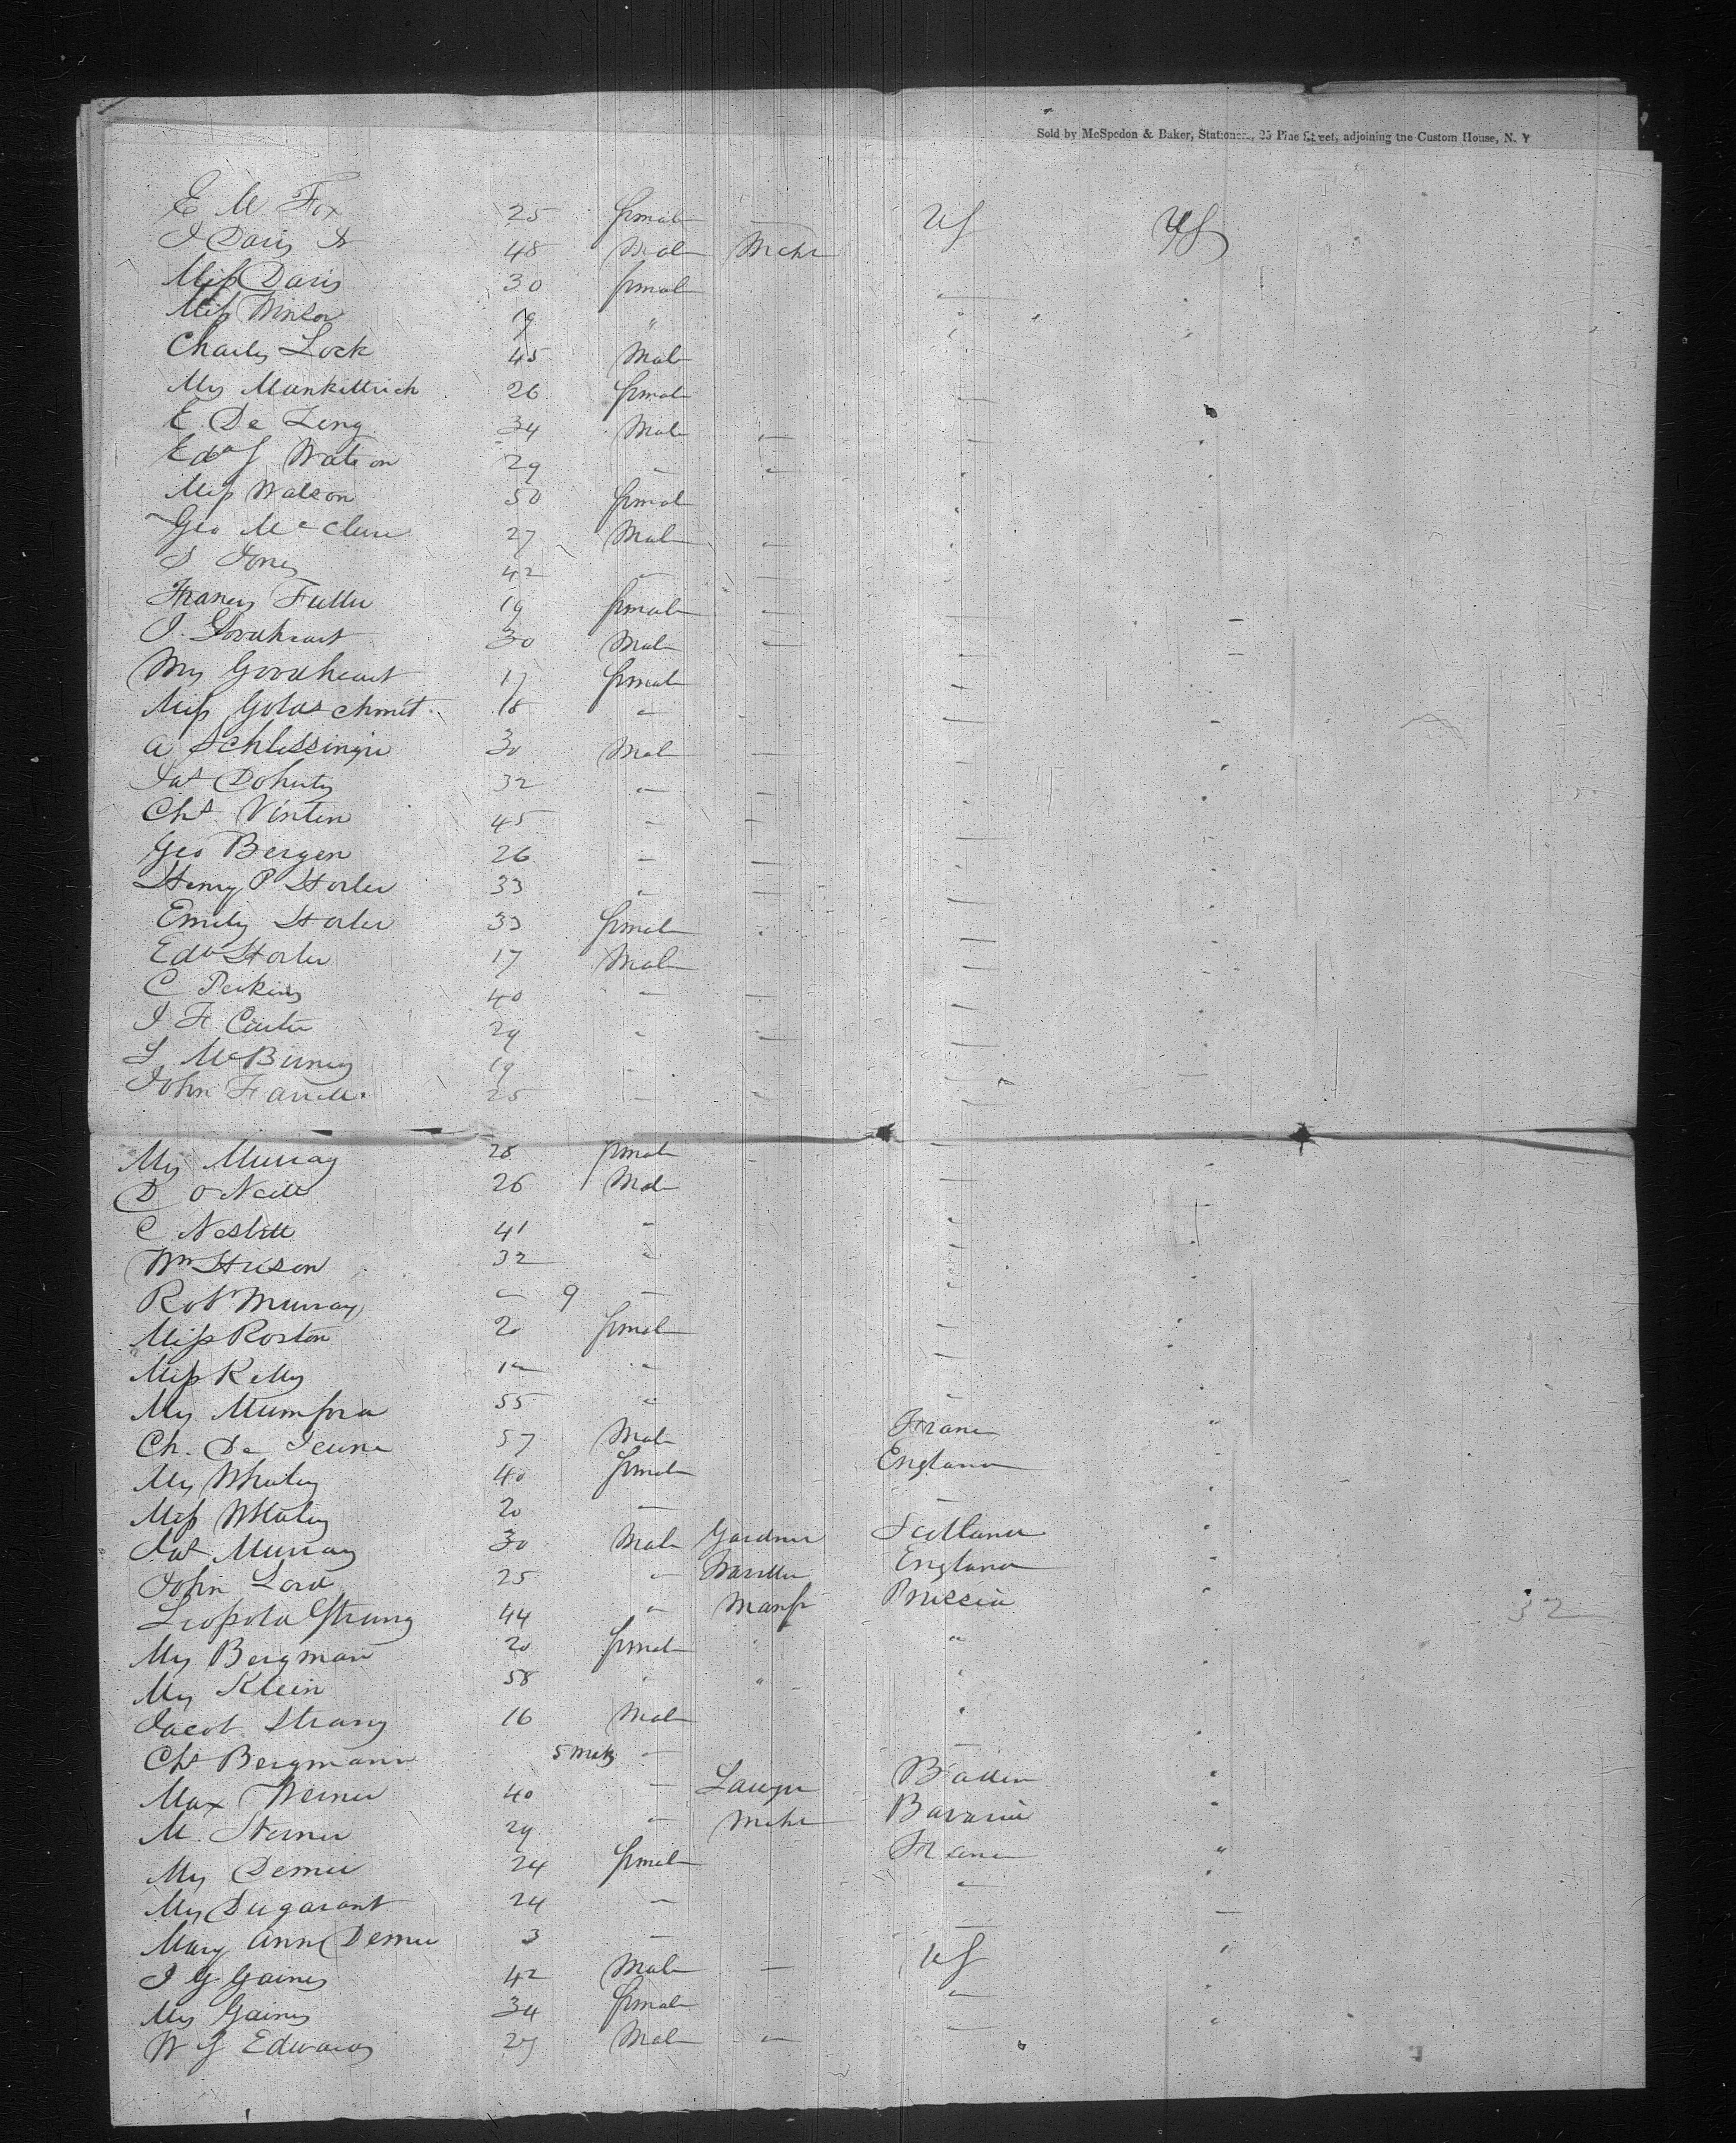 Sold by McSpedon & Baker, Stationers, 25 Pine Street, adjoining the Custom House, N. Y
E M Fox 25 female — US US
J Davis Jr 48 Male Mcht
Miss Davis 30 female
Miss 19 "
Charles Lock 45 Male
Mrs Mankittrick 26 female —
E. De Long 34 Male — —
Edwd J Watson 29 " "
Miss Watson 50 female
Geo McClure 27 Male —
S Jones 42 " —
Frances Fuller 19 female — —
J. Goodheart 30 Male —
Mrs Goodheart 17 female —
Miss Goldschmit 18 " —
A Schlessinger 30 Male — —
Jas Doherty 32 " —
Chs. Vinten 45 " —
Geo Bergen 26 " — —
Henry P 33 " —
Emily 33 female —
Edw 17 Male —
C Perkins 40 " — —
J F Carter 29 " — —
S McBurney 19 "
John Farrell 25 — — —
Mrs Murray 28 female — —
D O Neill 26 Male —
C Nesbitt 41 "
Wm 32 "
Robt Murray — 9 —
Miss Roston 20 female —
Miss Kelly "
Mrs Mumford 55 "
Ch. De Jeune 57 Male France "
Mrs Whaley 40 female England
Miss Whaley 20 — —
Jas Murray 30 Male Gardner Scotland
John Lord 25 " England
Leopold Strang 44 " Manfr Prussia
Mrs Bergman 20 female " "
Mrs Klein 58 " "
Jacob Strang 16 Male "
Chs Bergmann 5 Mths — —
Max Werner 40 — Lawyer Baden
M. Sterner 29 " Mcht Bavaria
Mrs Demer 24 female France "
Mrs Dugarant 24 " —
Mary Ann Demer 3 — —
J G Gaines 42 Male — US
Mrs Gaines 34 female "
W J Edwards 27 Male " —
32